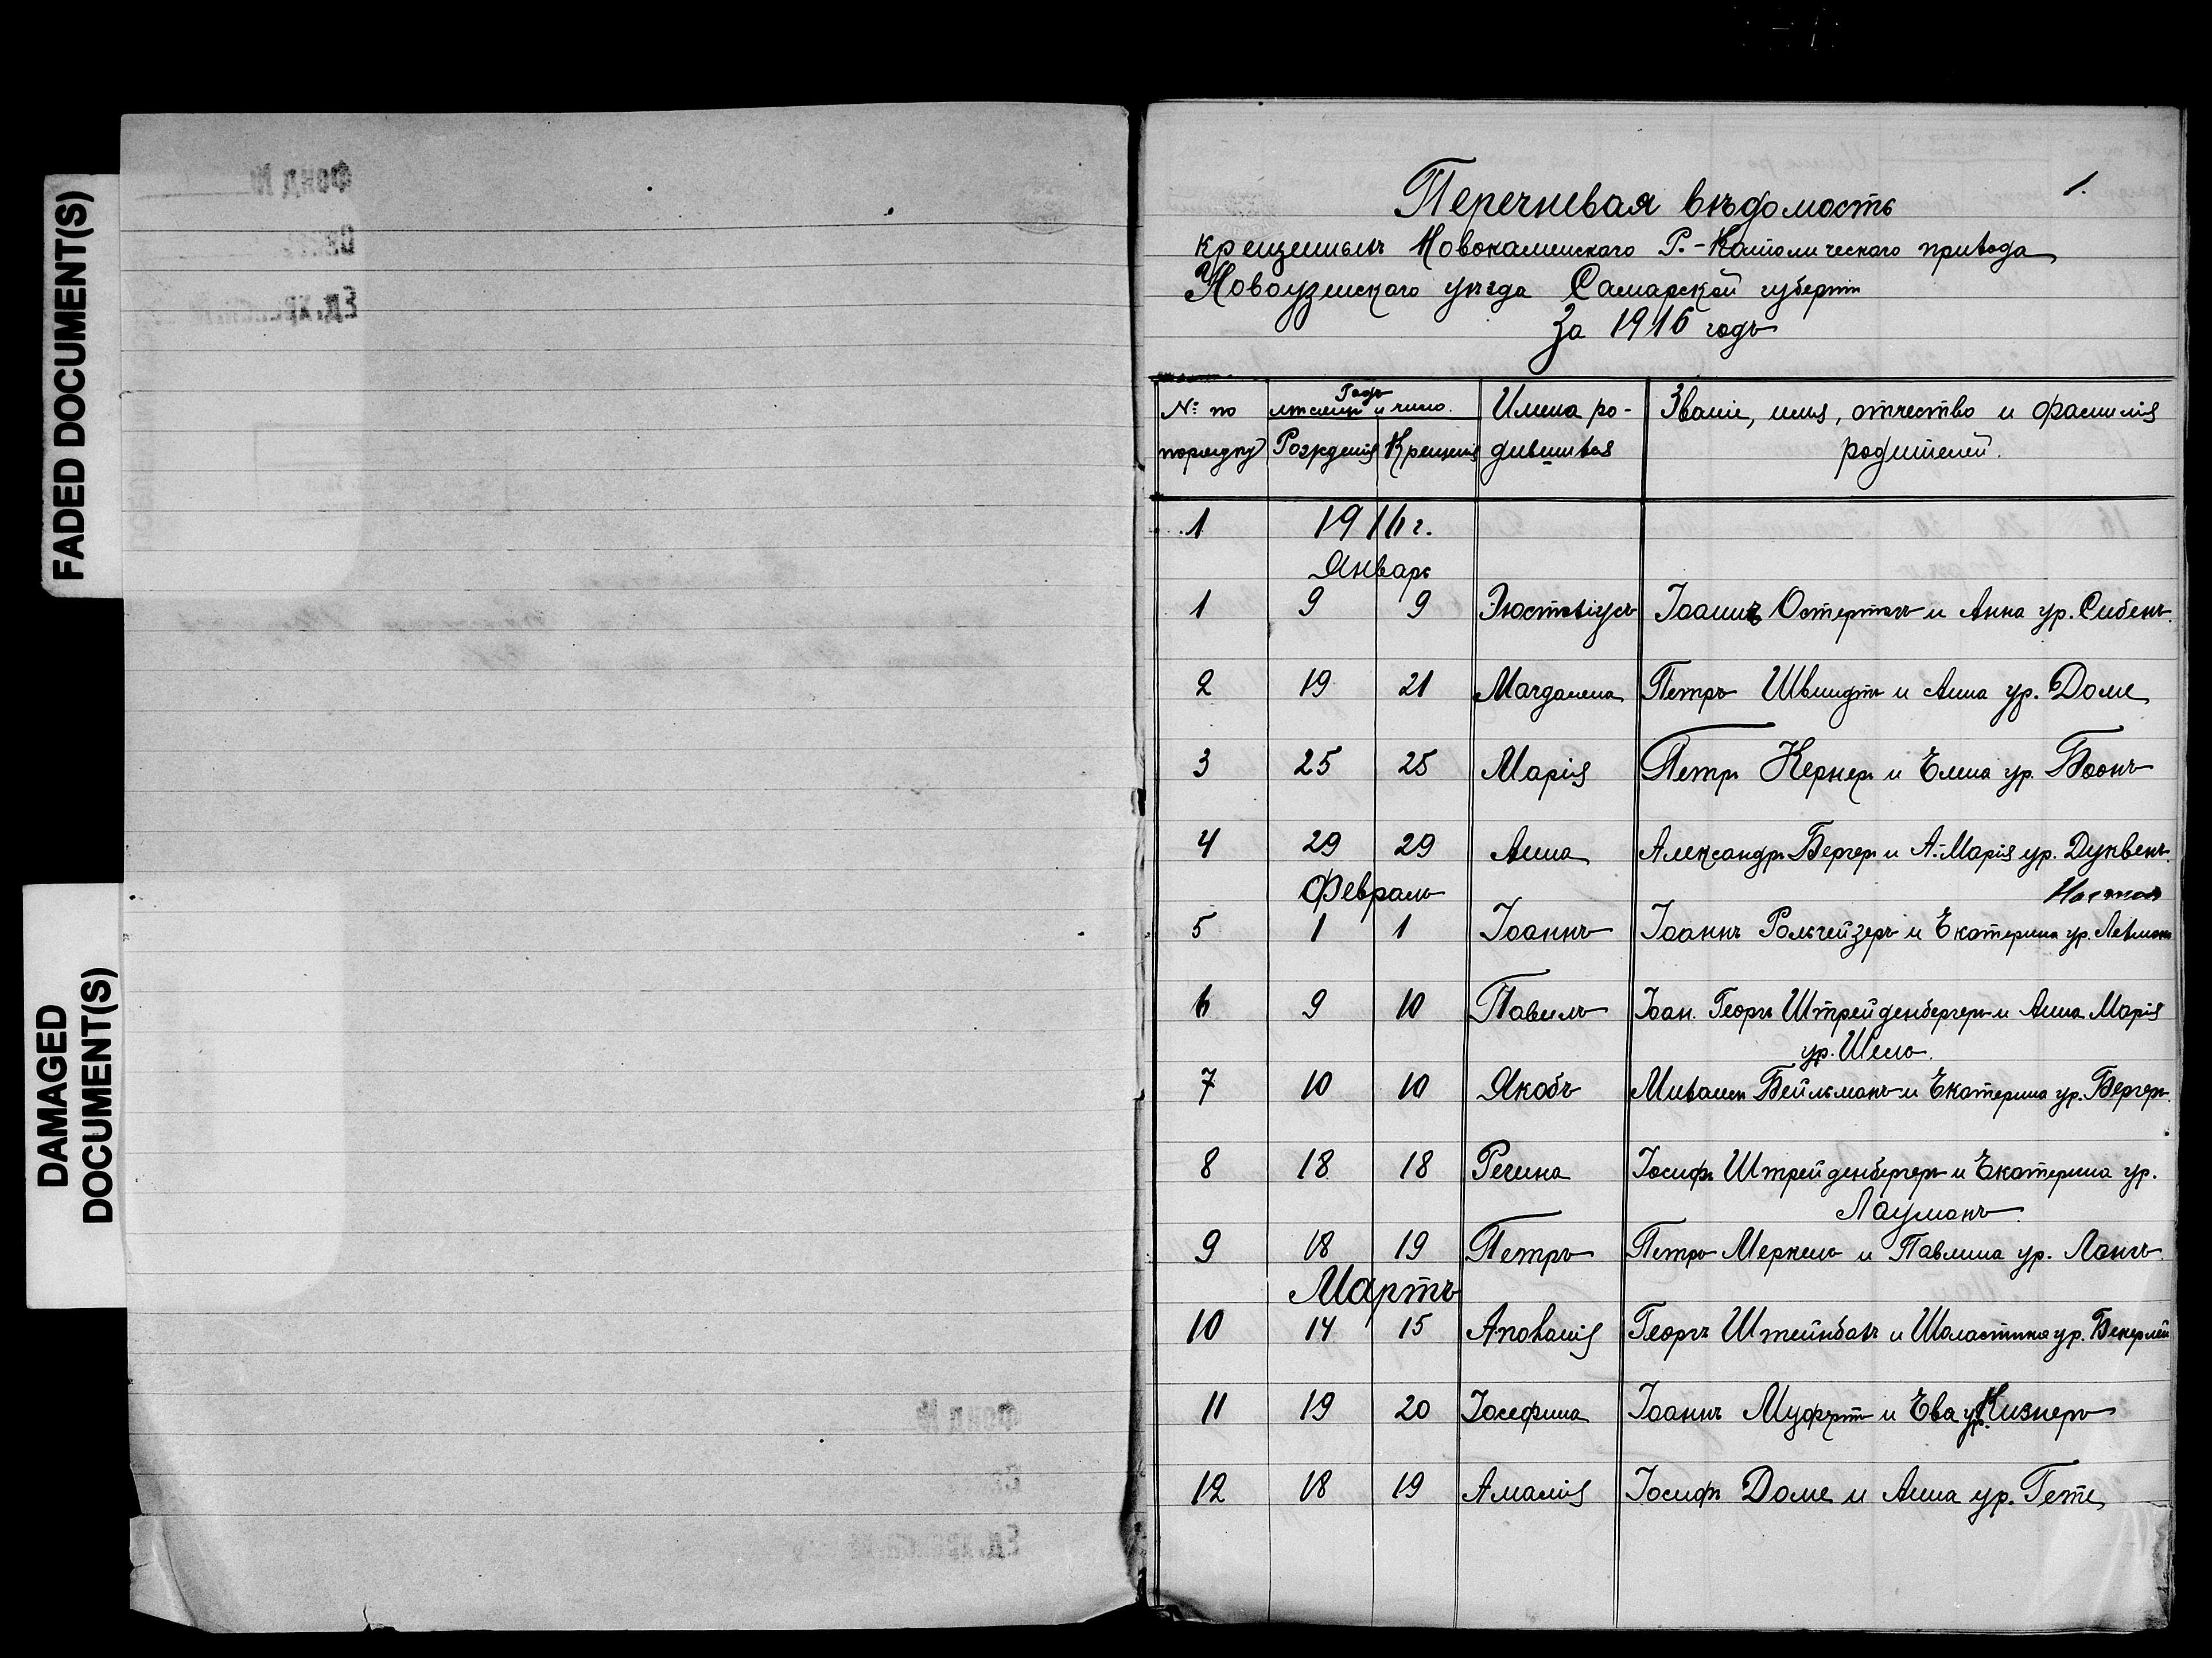 FADED DOCUMENT(S)
DAMAGED
DOCUMENT(S)
Фонд №
Ед. хранен. №
Фонд №
Ед. хранен. №
1.
Перечневая вѣдомость
крещеныхъ Новокаменскаго Р.-Католическаго прихода
Новоузенскаго уѣзда Самарской губерніи
За 1916 годъ
№ по порядку
Годъ
мѣсяцъ и число.
Рожденія Крещенія
Имена ро-
дившихся
Званіе, имя, отчество и фамилія
родителей.
1 1916 г.
Январь
1 9 9 Эюстахіусъ Іоаннъ Остертагъ и Анна ур. Сибенъ.
2 19 21 Магдалена Петръ Швиндтъ и Анна ур. Доме
3 25 25 Марія Петръ Кернеръ и Елена ур. Боонъ
4 29 29 Анна Александръ Бергеръ и А.-Марія ур. Дуквенъ.
Февраль
5 1 1 Іоаннъ Іоаннъ Рольгейзеръ и Екатерина ур. Лехманъ
6 9 10 Павелъ Іоан. Георгъ Штрейденбергеръ и Анна Марія
ур. Шель.
7 10 10 Якобъ Михаилъ Бейльманъ и Екатерина ур. Бергеръ.
8 18 18 Регина Іосифъ Штрейденбергеръ и Екатерина ур.
Лауманъ
9 18 19 Петръ Петръ Меркель и Павлина ур. Лангъ.
Мартъ
10 14 15 Аполанія Георгъ Штейнбахъ и Шоластика ур. Бекерлей
11 19 20 Іосефина Іоаннъ Муфертъ и Ева ур. Кизнеръ
12 18 19 Амалія Іосифъ Доме и Анна ур. Гете